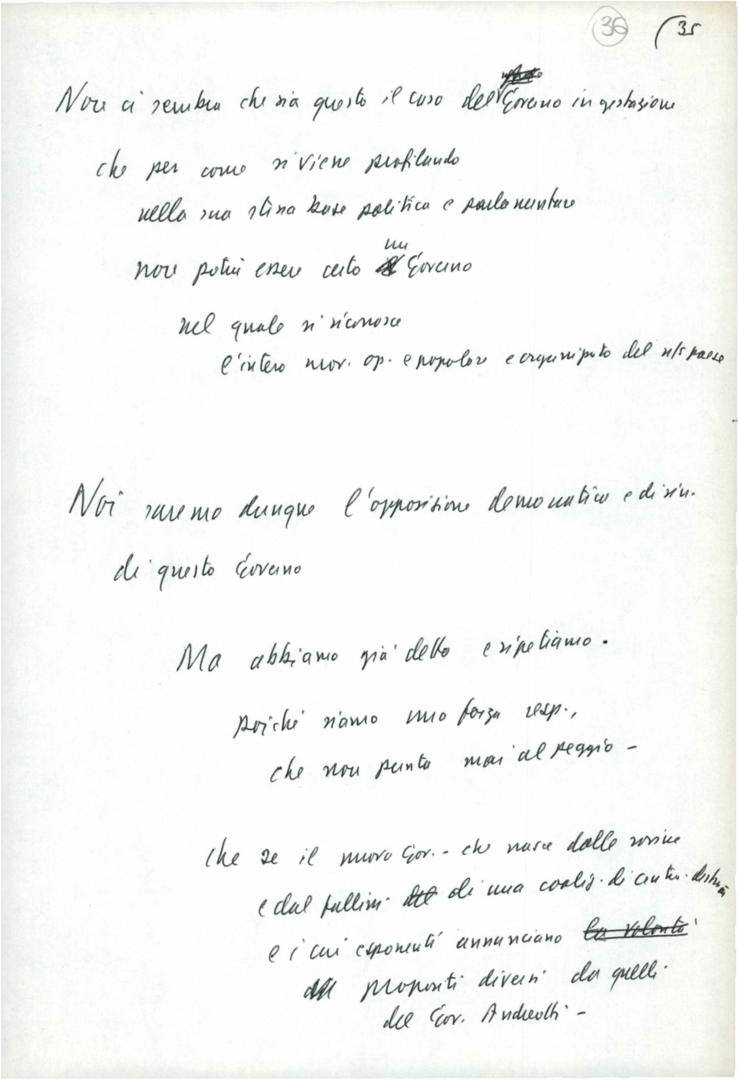 36 (35
Non ci sembra che sia questo il caso del Governo in gestazione
che per come si viene profilando
nella sua stessa base politica e parlamentare
un
non potrà essere certo Governo
nel quale si riconosce
l'intero mov. op. e popolare e organizzato del n/s paese
Noi saremo dunque l'opposizione democratica e di sin.
di questo Governo
Ma abbiamo già detto e ripetiamo.
poiché siamo una forza resp.,
che non punta mai al peggio -
che se il nuovo Gov. - che nasce dalle rovine
e dal fallim. di una coaliz. di centro-destra
e i cui esponenti annunciano la volontà
propositi diversi da quelli
del Gov. Andreotti -